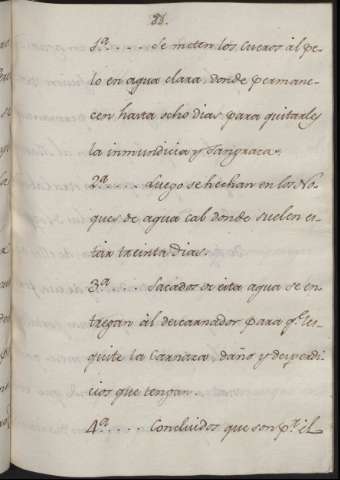 88.
1ª..... Se meten los Cueros âl pe-
lo en agua clara, donde permane-
cen hasta ocho dias para quitarles
la inmundicia y sangraza.
2ª.... Luego se hechan en los No-
ques de agua cal donde suelen es-
tar treinta dias.
3ª.... Sacados de esta agua se en-
tregan âl descarnador para q.e les
quite la Carnaza, daño y desperdi-
cios que tengan.
4ª..... Concluidos que son p.r el